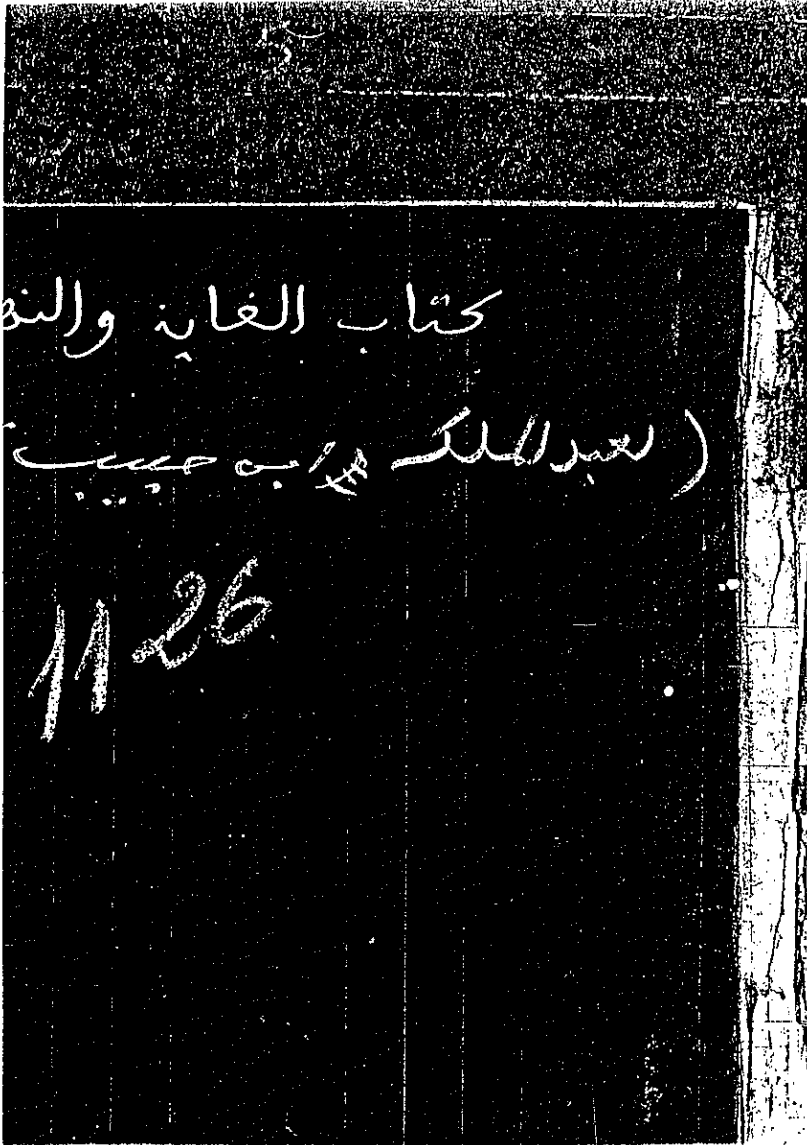 كتاب الغاية والنه
(لعبد الملك ابن حبيب
11 26